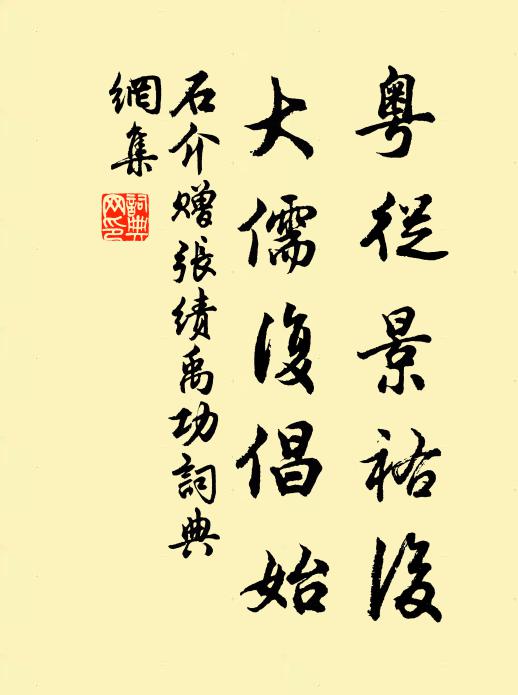 粵從景祐後
大儒復倡始
石介贈張績禹功詞典
網集
詞典網印